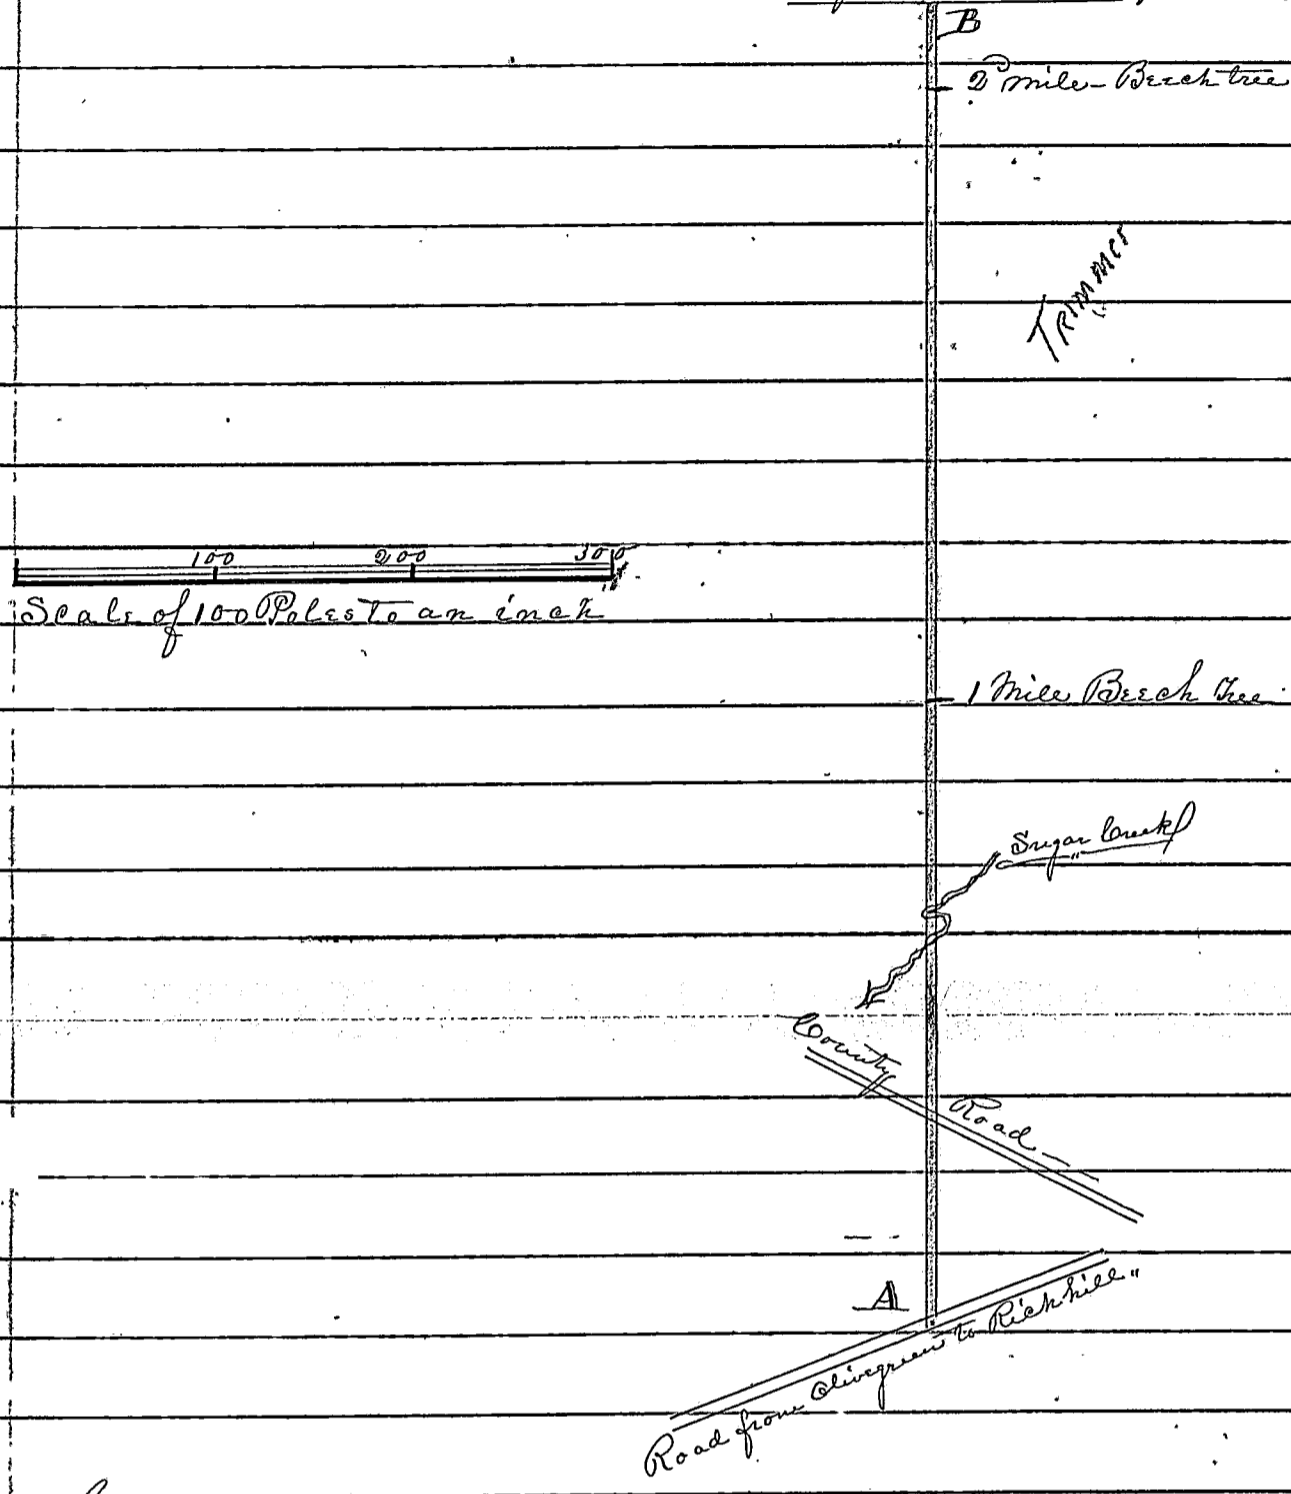 B
2 mile - Beech tree
Trimmer
100 200 300
Scale of 100 Poles to an inch
1 Mile Beech Tree
Sugar Creek
County Road
A
Road from Olivegreen to Rich hill "